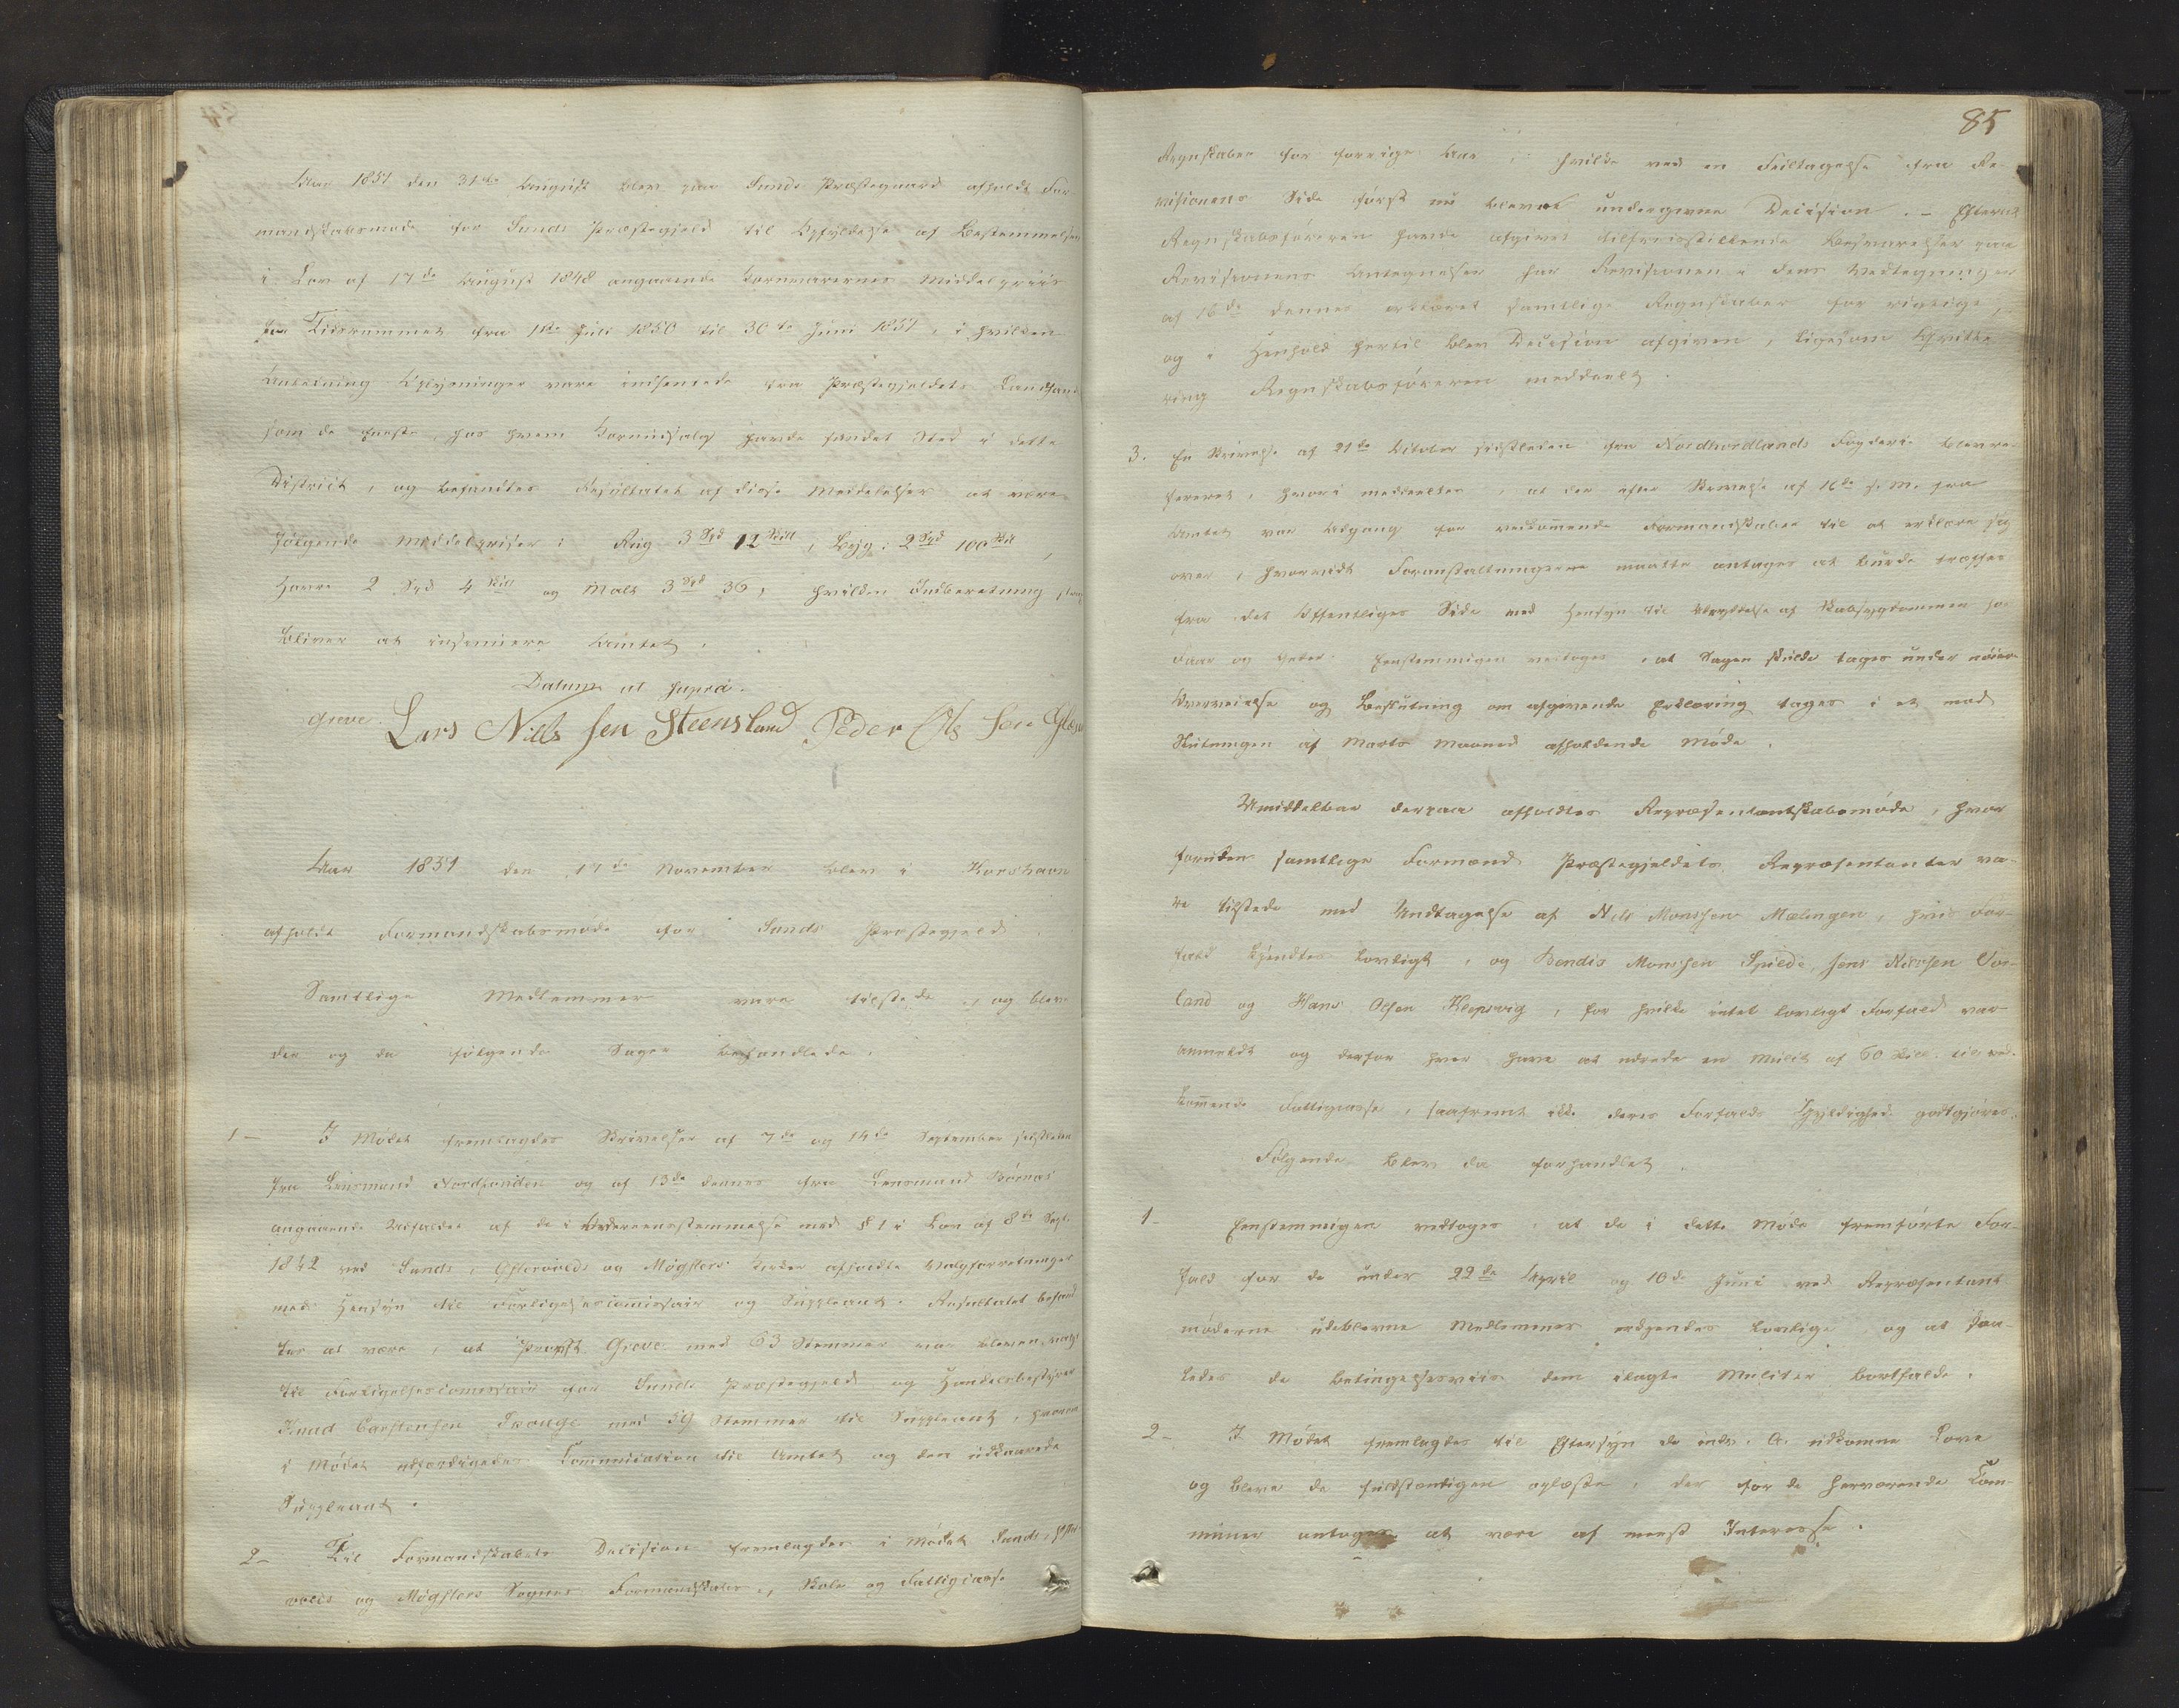 Aar 1851 den 31te August blev paa Sunds Præstegaard afholdt For-
mandskabsmøde for Sunds Præstegjeld til Opfyldelse af Bestemmelsen
i Lov af 17de August 1848 angaaende Kornvarernes Middelpriis
for Tidsrummet fra 1ste Juli 1850 til 30te Juni 1851, i hvilken
Anledning Oplysninger vare indhentede fra Præstegjeldets Landhand
som de fleste hos hvem Kornudsalg havde fundet Sted i dette
District, og befandtes Resultatet af disse Meddelelser at være
følgende Middelpriser: Rug 3 Spd 12 Skill, Byg: 2 Spd 100 Skl,
Havre 2 Spd 4 Skill og Malt 3 Spd 36, hvilken Indberetning
bliver at insinuere Amtet.
Datum ut supra.
Greve. Lars Nills sen Steensland Peder Ols Sen
Aar 1851 den 17de November blev i Korshavn
afholdt Formandskabsmøde for Sunds Præstegjeld.
Samtlige Medlemmer vare tilstede og bleve
der og da følgende Sager behandlede.
1 – I Mødet fremlagdes Skrivelser af 7de og 14de September sidstleden
fra Lensmand Nordhunden og af 13de dennes fra Lensmand Børnes
angaaende Udfaldet af de i Overeensstemmelse med § 1 i Lov af 8de Sept.
1842 ved Sunds, Østervolds og Møgsters Kirker afholdte Valgforretninger
med Hensyn til Forligelsescommissair og Suppleant. Resultatet befand
tes at være, at Provst Greve med 63 Stemmer var bleven valgt
til Forligelsescommissair for Sunds Præstegjeld og Handelsbestyrer
Knud Carstensen Skouge med 59 Stemmer til Suppleant, hvorom
i Mødet udfærdigedes Communication til Amtet og den udkaarede
Suppleant.
2 – Til Formandskabets Decision fremlagdes i Mødet Sunds, Øster
volds og Møgsters Sognes Formandskabs-, Skole og Fattigcasse
85
Regnskaber for forrige Aar, hvilke ved en Feiltagelse fra Re-
visionens Side først nu blevet undergivne Decision. – Efterat
Regnskabsføreren havde afgivet tilfredsstillende Besvarelser paa
Revisionens Antegnelser har Revisionen i dens Vedtegninger
af 16de dennes erklæret samtlige Regnskaber for rigtige,
og i Henhold hertil blev Decision afgiven, ligesom Qvitte-
ring Regnskabsføreren meddeelt.
3. En Skrivelse af 21de October sidstleden fra Nordhordlands Fogderi blev re-
fereret, hvori meddeeltes, at der efter Skrivelse af 16de s. M. fra
Amtet var Adgang for vedkommende Formandskaber til at erklære sig
over, hvorvidt Foranstaltningerne maatte antages at burde træffes
fra det Offentliges Side med Hensyn til Udryddelse af Skabsygdommen hos
Faar og Geder. Eenstemmigen vedtoges, at Sagen skulde tages under nøiere
Overveielse og Beslutning om afgivende Erklæring tages i et mod
Slutningen af Marts Maaned afholdende Møde.
Umiddelbar derpaa afholdtes Repræsentantskabsmøde, hvor
foruden samtlige Formænd Præstegjeldets Repræsentanter va-
re tilstede med Undtagelse af Nils Monssen Mælingen, hvis For-
fald kjendtes lovligt, og Bendis Monssen Spilde, Jens Nilssen
land og Hans Olsen Kleppevig, for hvilke intet lovligt Forfald var
anmeldt og derfor hver have at udrede en Mulct af 60 Skill. til ved-
kommende Fattigcasse, saafremt ikke deres Forfalds Gyldighed godtgjøres.
Følgende blev da forhandlet.
1 – Eenstemmigen vedtoges, at de i dette Møde fremførte For-
fald for de under 22de April og 10de Juni ved Repræsentant
møderne udeblevne Medlemmer erkjendes lovlige, og at saa-
ledes de betingelsesviis dem ilagte Mulcter bortfalde.
2 – I Mødet fremlagdes til Eftersyn de indev. A. udkomne Love
og bleve de fuldstændigen oplæste, der for de herværende Com-
muner antages at være af meest Interesse.